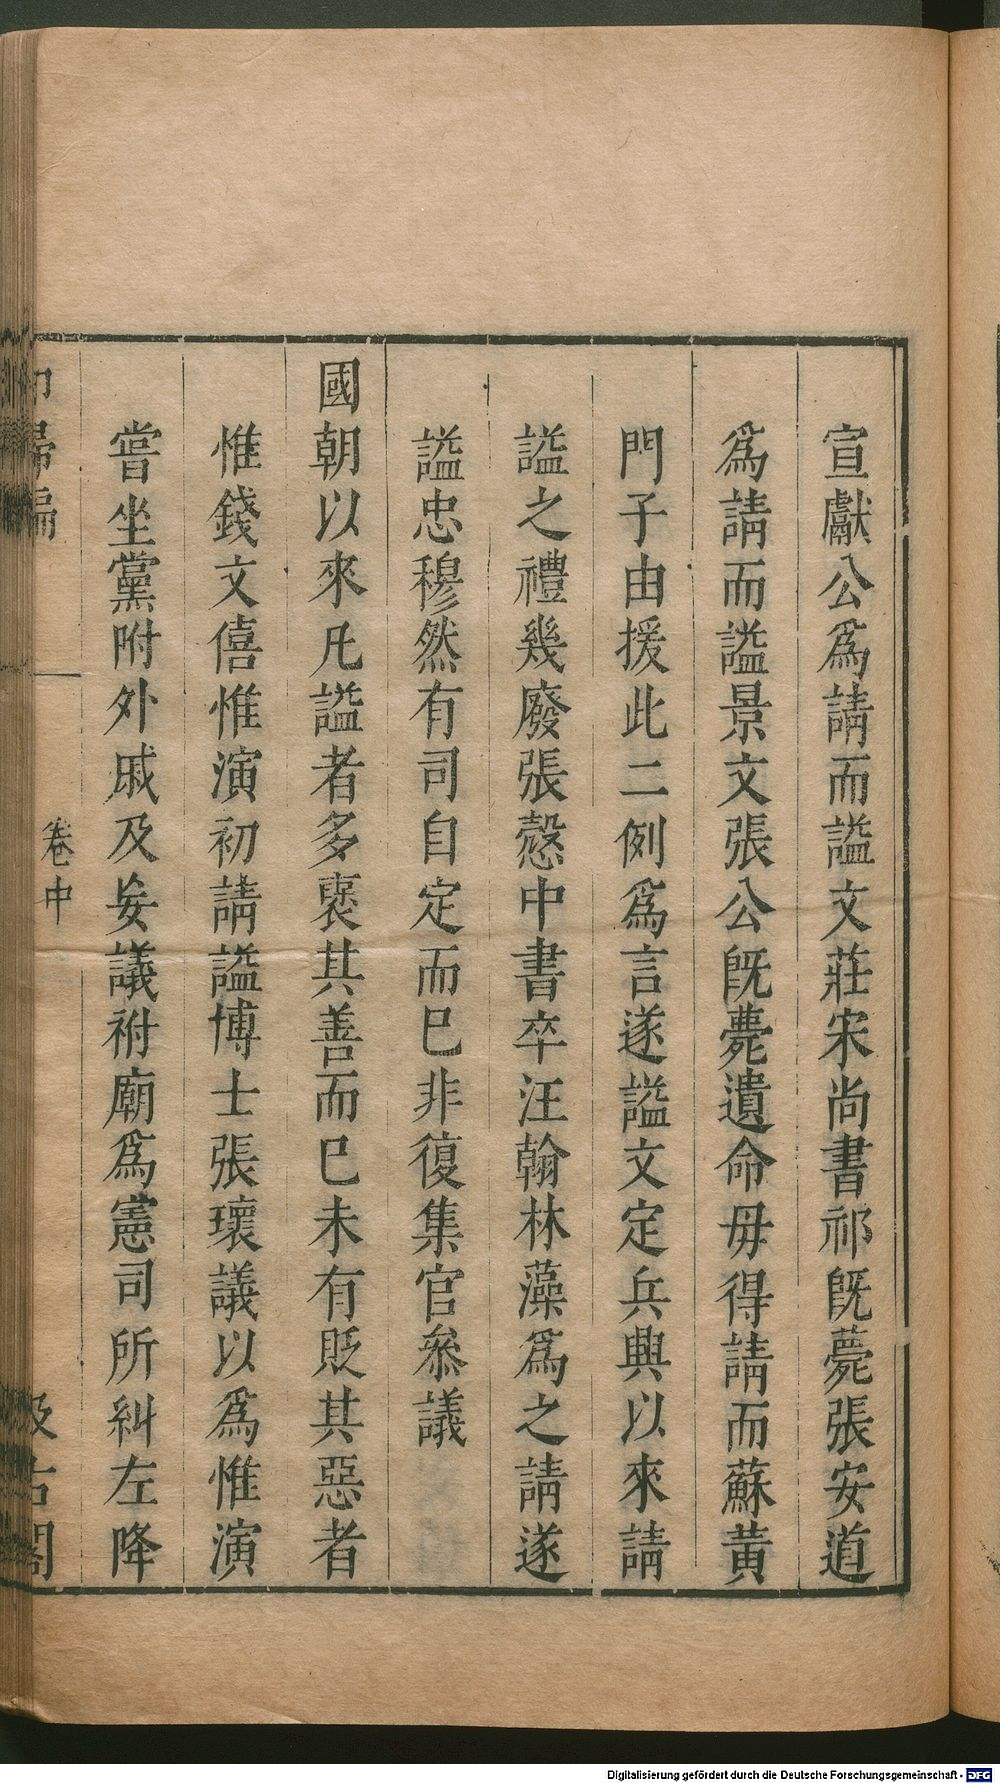 宣獻公爲請而謚文莊宋尚書祁旣薨張安道
爲請而謚景文張公旣薨遺命毋得請而蘇黃
門子由援此二例爲言遂謚文定兵興以來請
謚之禮幾廢張慤中書卒汪翰林藻爲之請遂
謚忠穆然有司自定而巳非復集官叅議
國朝以來凡謚者多襃其善而巳未有貶其惡者
惟錢文僖惟演初請謚博士張瓌議以爲惟演
嘗坐黨附外戚及妄議祔廟爲憲司所糾左降
卷中
古閣
Digitalisierung gefördert durch die Deutsche Forschungsgemeinschaft - DFG